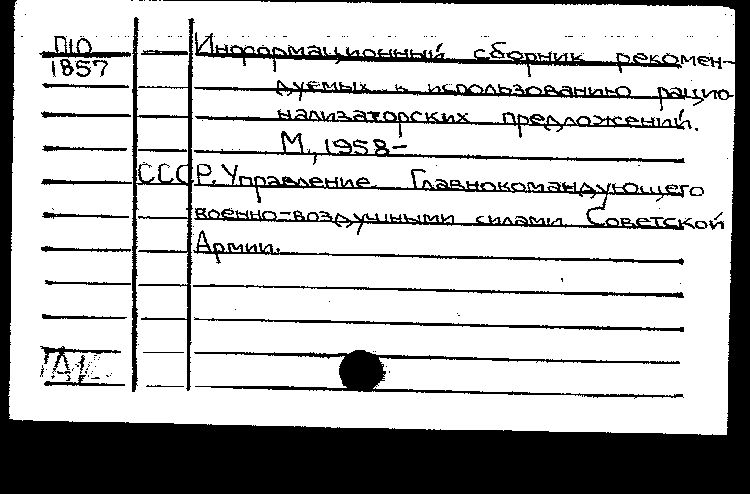 П10 Информационный сборник рекомен-
1857
дуемых к использованию рацио
нализаторских предложений.
М., 1958-
СССР. Управление Главнокомандующего
военно-воздушными силами Советской
Армии.